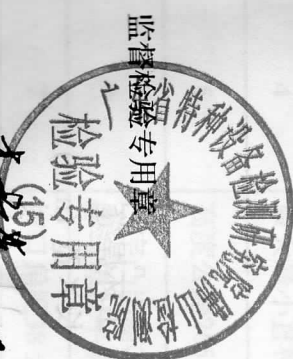 监督检验专用章
省特种设备检测研究院佛山检测院
检验专用章
(15)